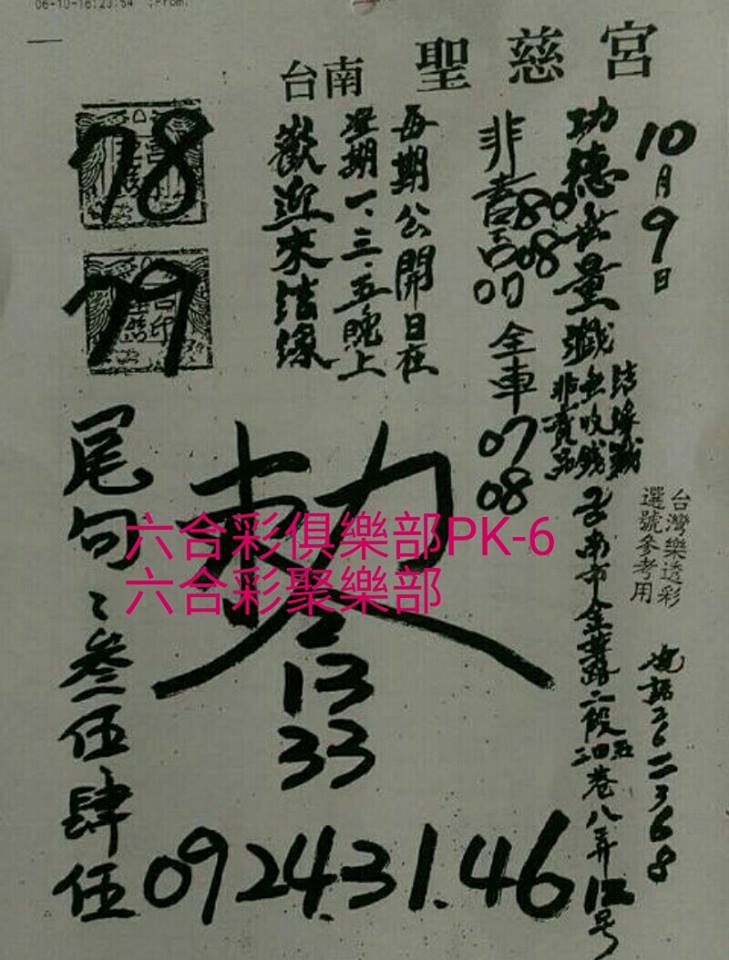 06-10-16:23:54 ;From:
台南 聖慈宮
10月9日
功德無量
結緣
無收錢
非賣品
台灣樂透彩
選號參考用
台南市金華路二段
巷八弄12号
電話2622368
非賣品
80
08
07
全車
07
08
每期公開日在
星期一、三、五晚上
歡迎來結緣
78
79
尾句
叁伍肆伍
六合彩俱樂部PK-6
六合彩聚樂部
13
33
09 24.31.46